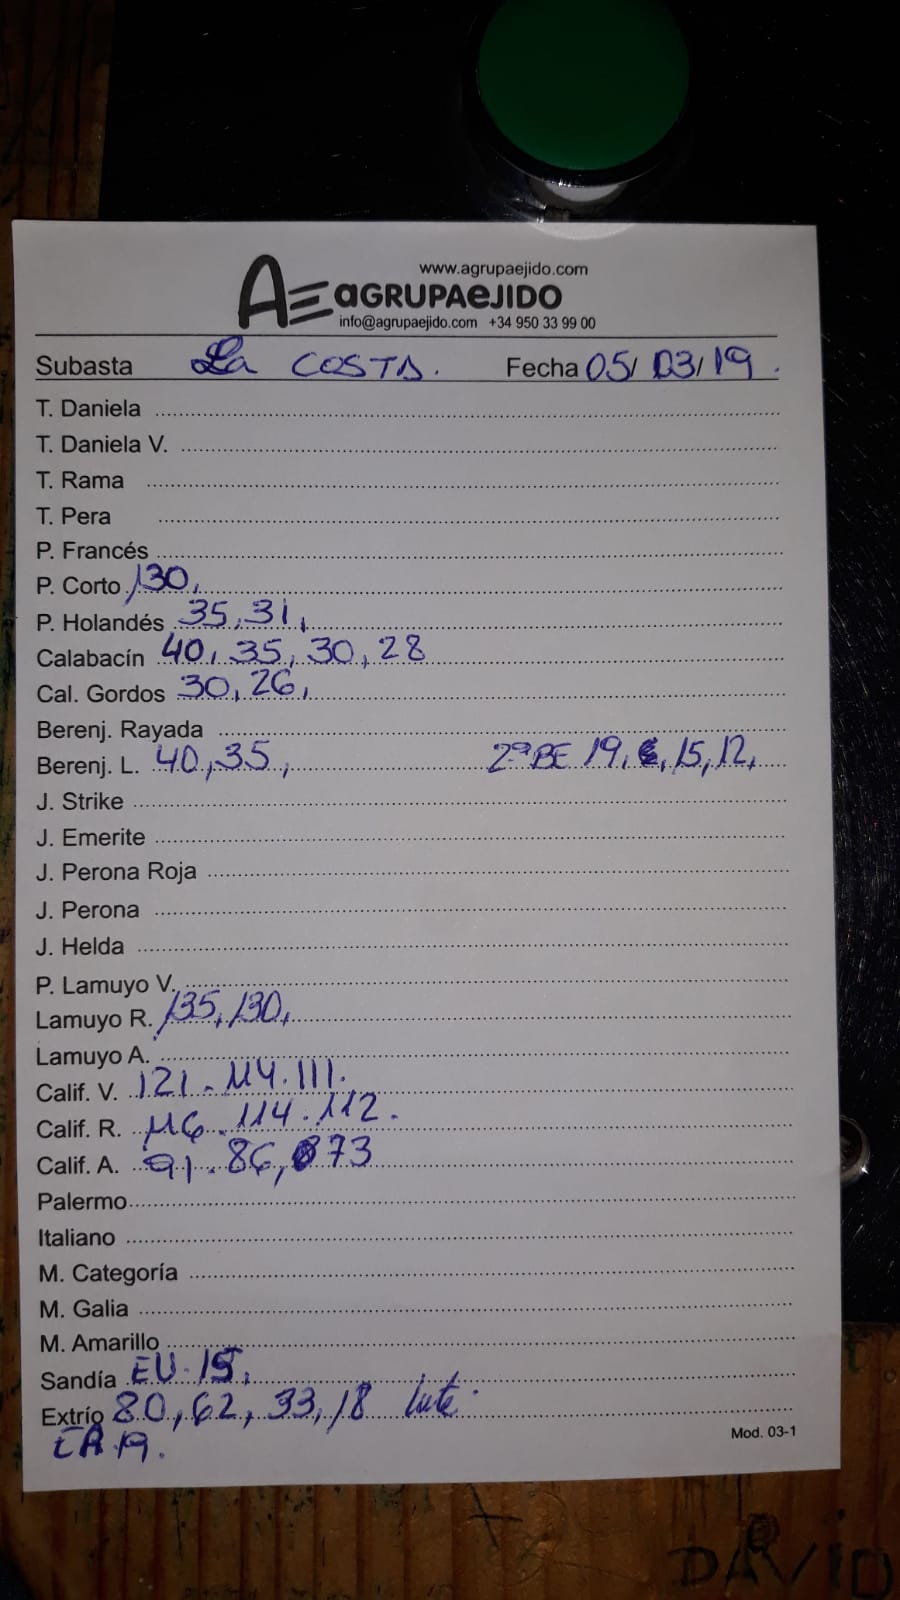 www.agrupaejido.com
AE aGRUPAeJIDO
info@agrupaejido.com +34 950 33 99 00
Subasta La COSTA. Fecha 05/ 03/ 19.
T. Daniela
T. Daniela V.
T. Rama
T. Pera
P. Francés
P. Corto 130,
P. Holandés 35, 31,
Calabacín 40, 35, 30, 28
Cal. Gordos 30, 26,
Berenj. Rayada
Berenj. L. 40, 35, 2ª BE 19, 15, 12,
J. Strike
J. Emerite
J. Perona Roja
J. Perona
J. Helda
P. Lamuyo V.
Lamuyo R. 135, 130,
Lamuyo A.
Calif. V. 121. 114. 111.
Calif. R. 116. 114. 112.
Calif. A. 91. 86, 73
Palermo
Italiano
M. Categoría
M. Galia
M. Amarillo
Sandía EU. 15,
Extrío 80, 62, 33, 18
CA. 19.
Mod. 03-1
DAVID